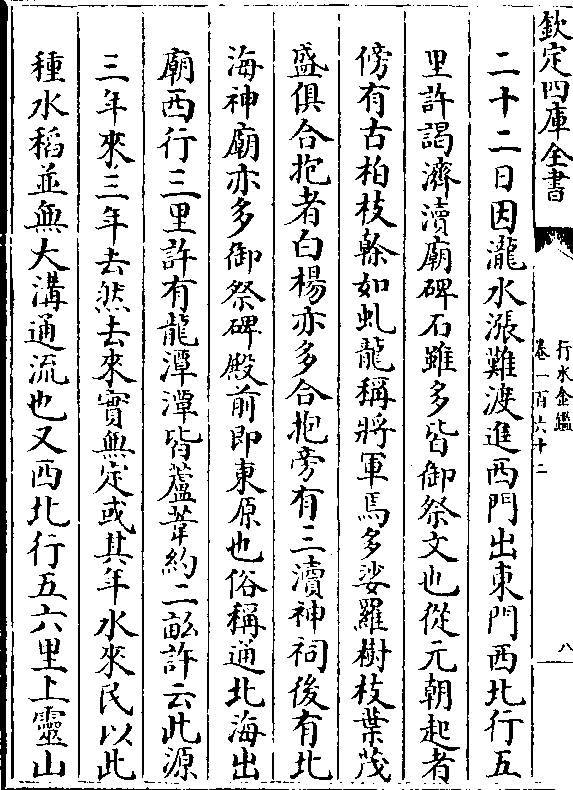 欽定四庫全書
行水金鑑
卷一百六十二
八
二十二日因瀧水漲難渡進西門出東門西北行五
里許謁濟瀆廟碑石雖多皆御祭文也從元朝起者
傍有古柏枝榦如虬龍稱將軍焉多娑羅樹枝葉茂
盛俱合抱者白楊亦多合抱旁有三瀆神祠後有北
海神廟亦多御祭碑殿前即東原也俗稱通北海出
廟西行三里許有龍潭潭皆蘆葦約二畝許云此源
三年來三年去然去來實無定或其年水來民以此
種水稻並無大溝通流也又西北行五六里上靈山